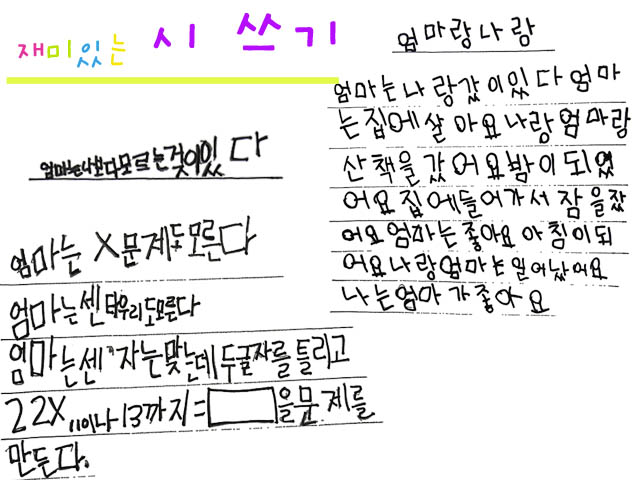 재미있는 시 쓰기
엄마는나보다모르는것이있다
엄마는 X문제도모른다
엄마는센타우리도모른다
엄마는센"자는맞는데두글자를틀리고
22X11이나13까지=을문제를
만든다.
엄마랑나랑
엄마는나랑같이있다엄마
는집에살아요나랑엄마랑
산책을갔어요밤이되었
어요집에들어가서잠을잤
어요엄마는좋아요아침이되
어요나랑엄마는일어났어요
나는엄마가좋아요